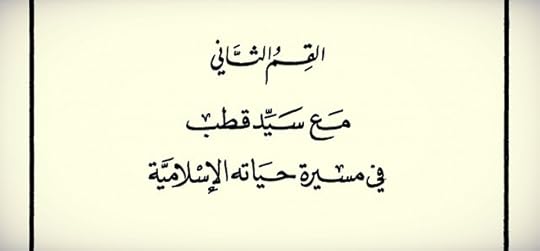 القِسمُ الثَّاني
مَع سَيِّد قطب
في مسيرة حيَاته الإسْلاميَّة